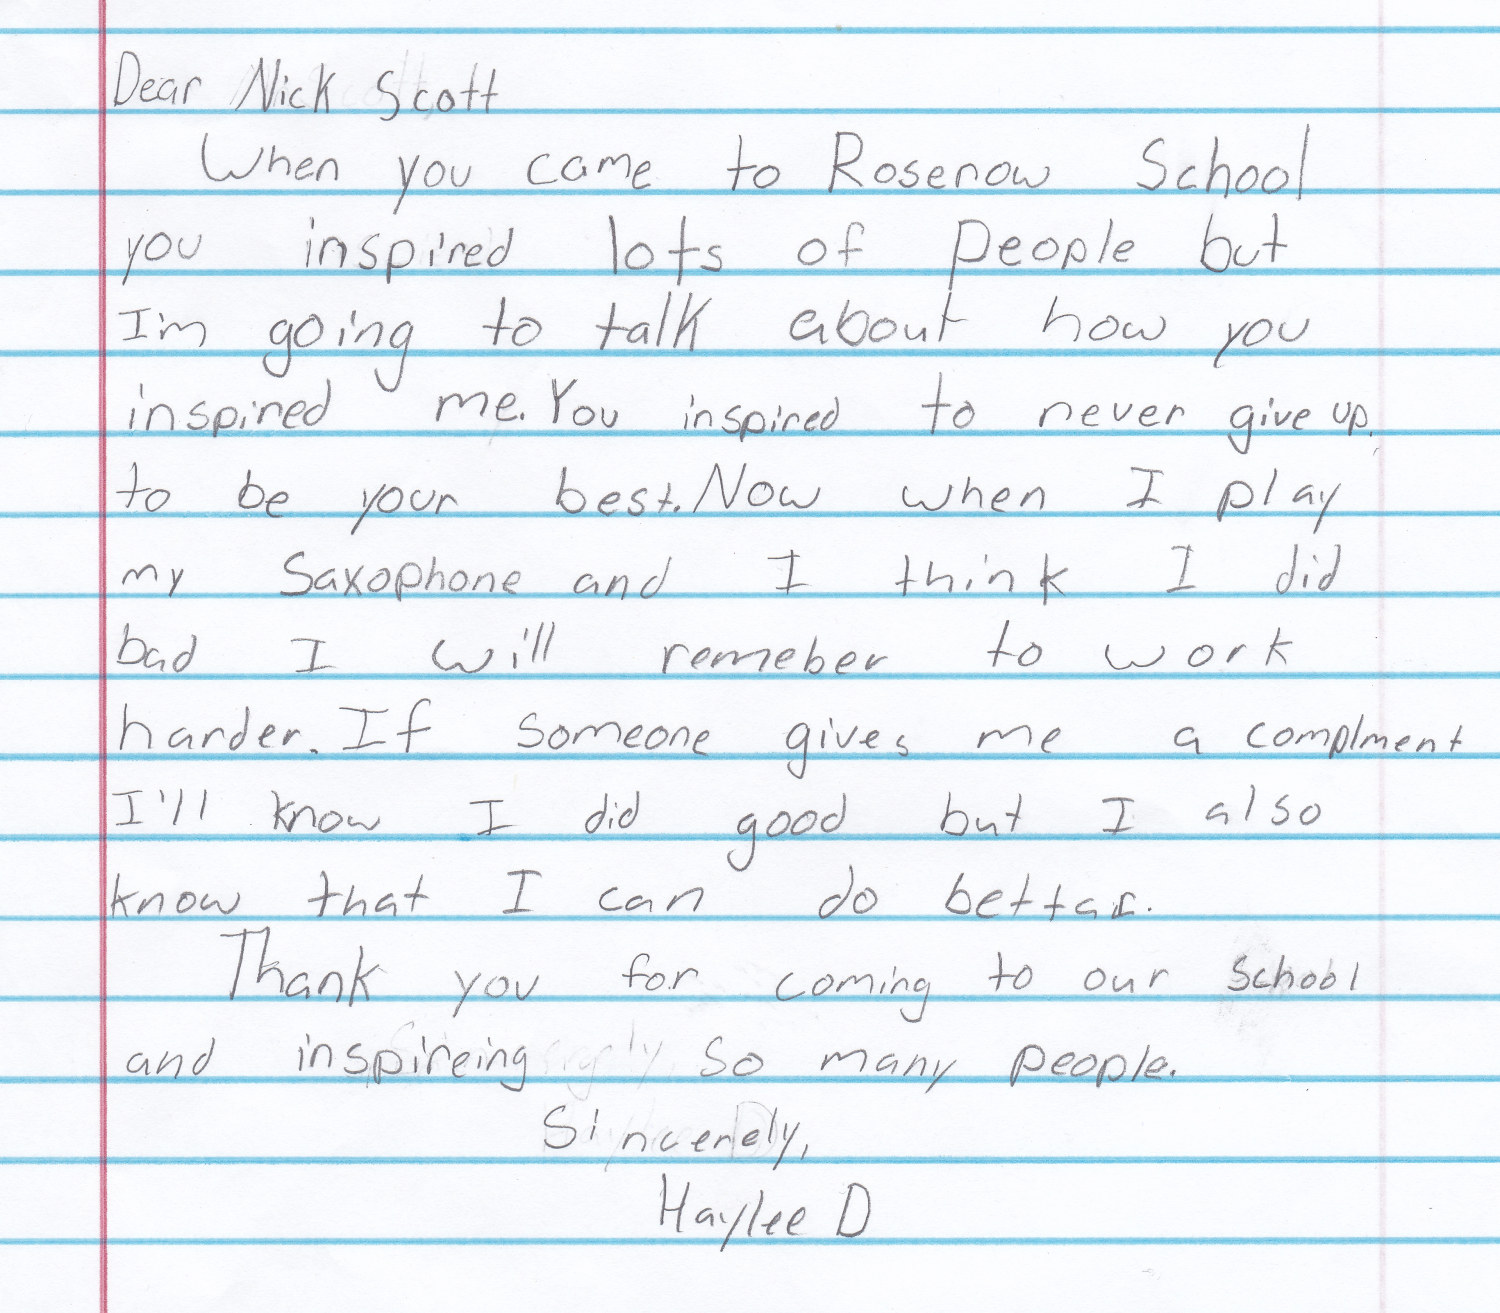 Dear Nick Scott
When you came to Rosenow School
you inspired lots of people but
I'm going to talk about how you
inspired me. You inspired to never give up,
to be your best. Now when I play
my Saxophone and I think I did
bad I will remeber to work
harder. If someone gives me a complment
I'll know I did good but I also
know that I can do bettar.
Thank you for coming to our school
and inspireing so many people.
Sincerely,
Haylee D